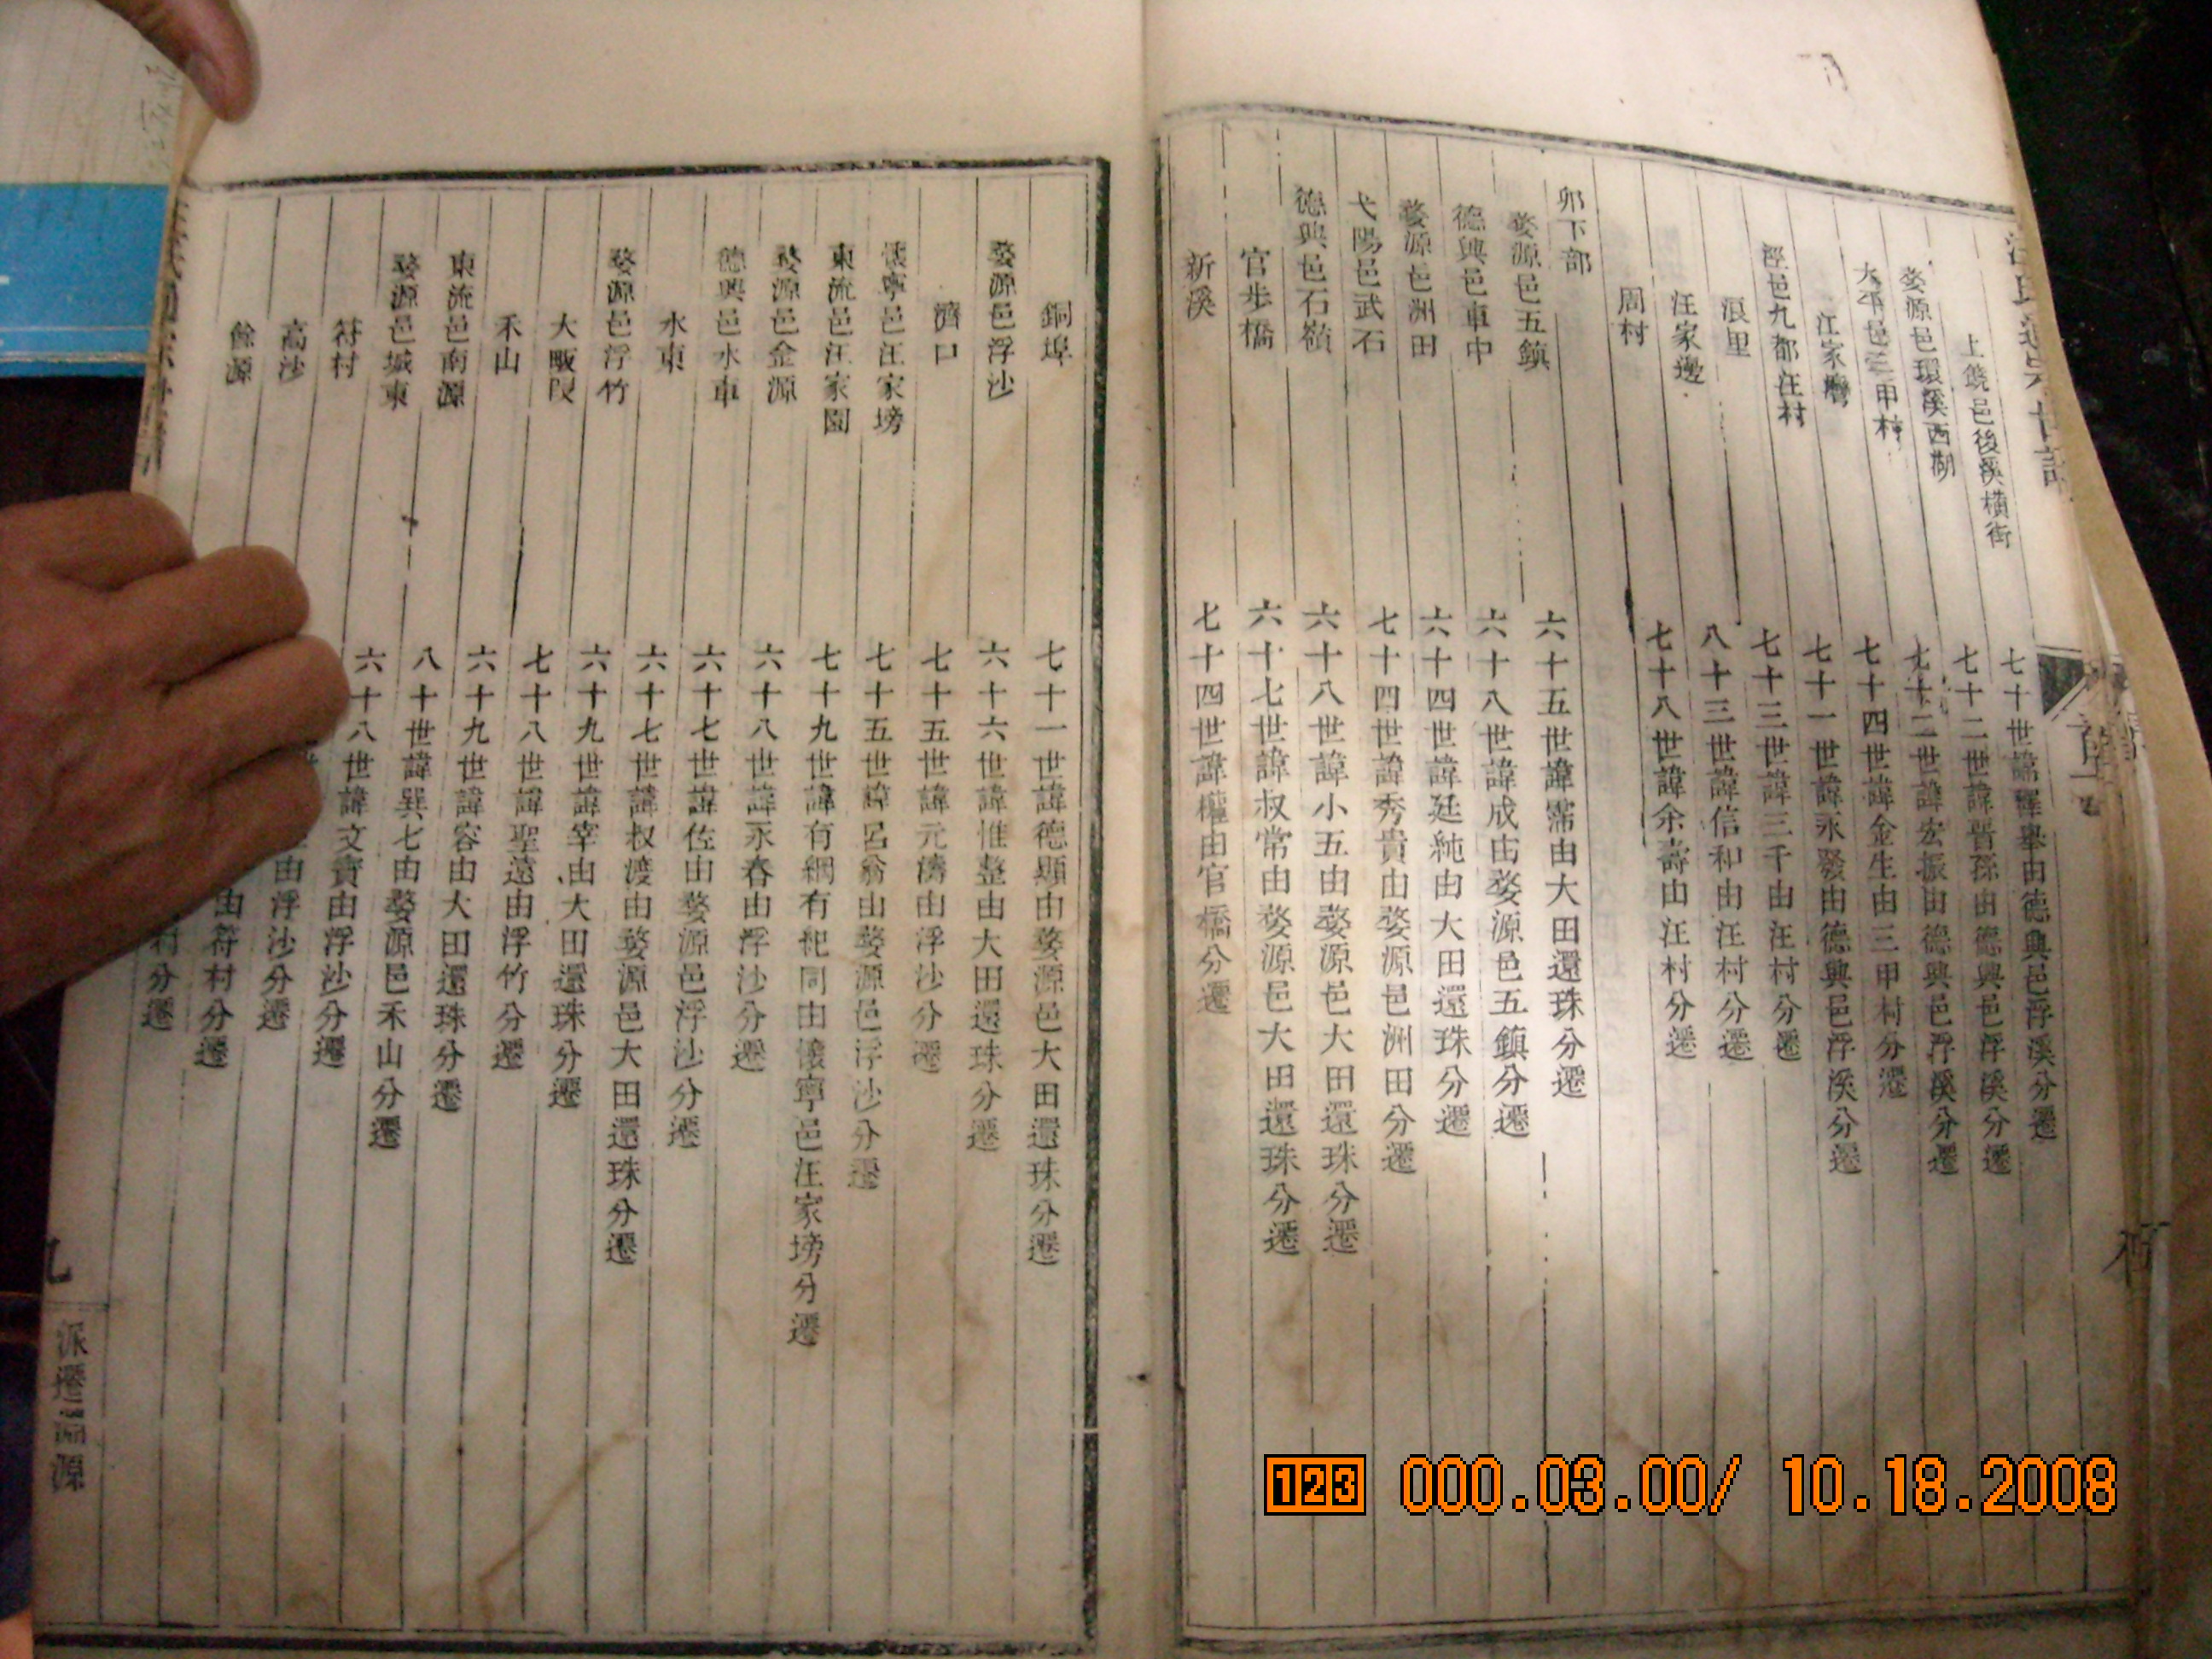 上饒邑後溪橫街　七十世諱霈舉由德興邑浮溪分遷
婺源邑環溪西湖　七十二世諱晉孫由德興邑浮溪分遷
太平邑三甲村　七十二世諱宏振由德興邑浮溪分遷
江家　七十四世諱金生由三甲村分遷
涇邑九都汪村　七十一世諱永發由德興邑浮溪分遷
浪里　七十三世諱三千由汪村分遷
汪家邊　八十三世諱信和由汪村分遷
周村　七十八世諱余壽由汪村分遷
卯下部
婺源邑五鎮　六十五世諱霈由大田還珠分遷
德興邑車中　六十八世諱成由婺源邑五鎮分遷
婺源邑洲田　六十四世諱廷純由大田還珠分遷
弋陽邑武石　七十四世諱秀貴由婺源邑洲田分遷
德興邑石嶺　六十八世諱小五由婺源邑大田還珠分遷
官步橋　六十七世諱叔常由婺源邑大田還珠分遷
新溪　七十四世諱權由官橋分遷
銅埠　七十一世諱德顯由婺源邑大田還珠分遷
婺源邑浮沙　六十六世諱惟整由大田還珠分遷
濟口　七十五世諱元濤由浮沙分遷
懷寧邑汪家塝　七十五世諱呂翁由婺源邑浮沙分遷
東流邑汪家園　七十九世諱有綱有祀同由懷寧邑汪家塝分遷
婺源邑金源　六十八世諱永春由浮沙分遷
德興邑水車　六十七世諱佐由婺源邑浮沙分遷
水東　六十七世諱叔渡由婺源邑大田還珠分遷
婺源邑浮竹　六十九世諱宰由大田還珠分遷
大畈段　七十八世諱聖遠由浮竹分遷
禾山　六十九世諱容由大田還珠分遷
東流邑南源　八十世諱巽七由婺源邑禾山分遷
婺源邑城東　六十八世諱文寶由浮沙分遷
符村　由浮沙分遷
高沙　由符村分遷
餘源　村分遷
九
派遷淵源
123 000.03.00/ 10.18.2008